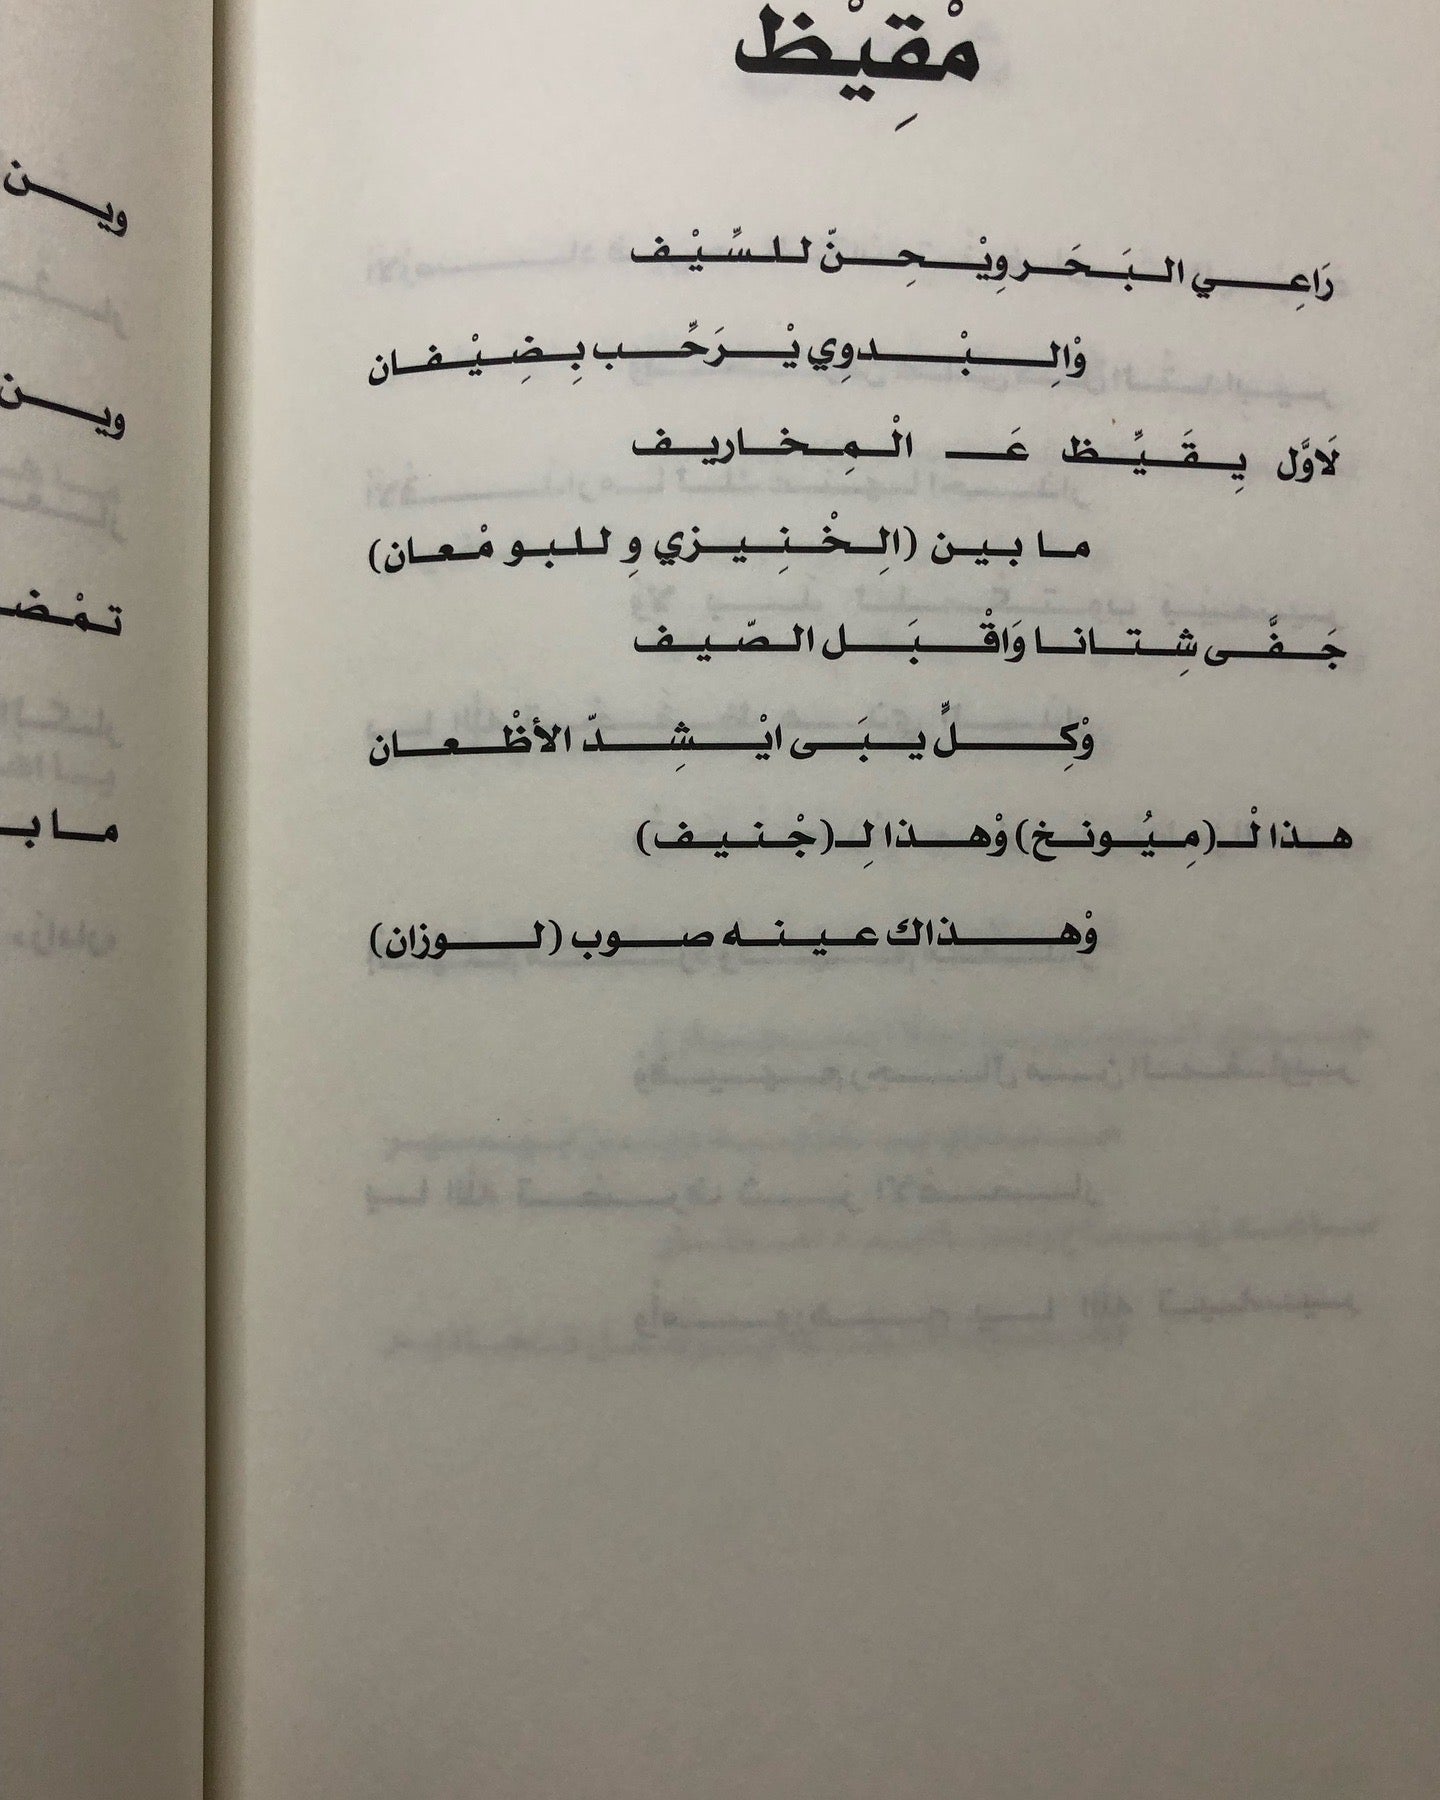 مْقِيْظ
رَاعِي البَحَر وِيْحِنّ للسِّيْف
وْالِبْدوِي يْرَحِّب بِضِيْفان
لَاوَّل يِقَيِّظ عَ الْمِخاريف
ما بين (اِلخْنِيزي وِ للبو مْعان)
جَفَّى شِتانا وَاقْبَل الصّيف
وْكِلٍّ يبَى ايْشِدّ الأظْعان
هذا لْـ(مِيُونخ) وْهذا لِـ(جْنيف)
وْهذاك عينه صوب (لوزان)
وين
وين
تمْضـ
ما بـ